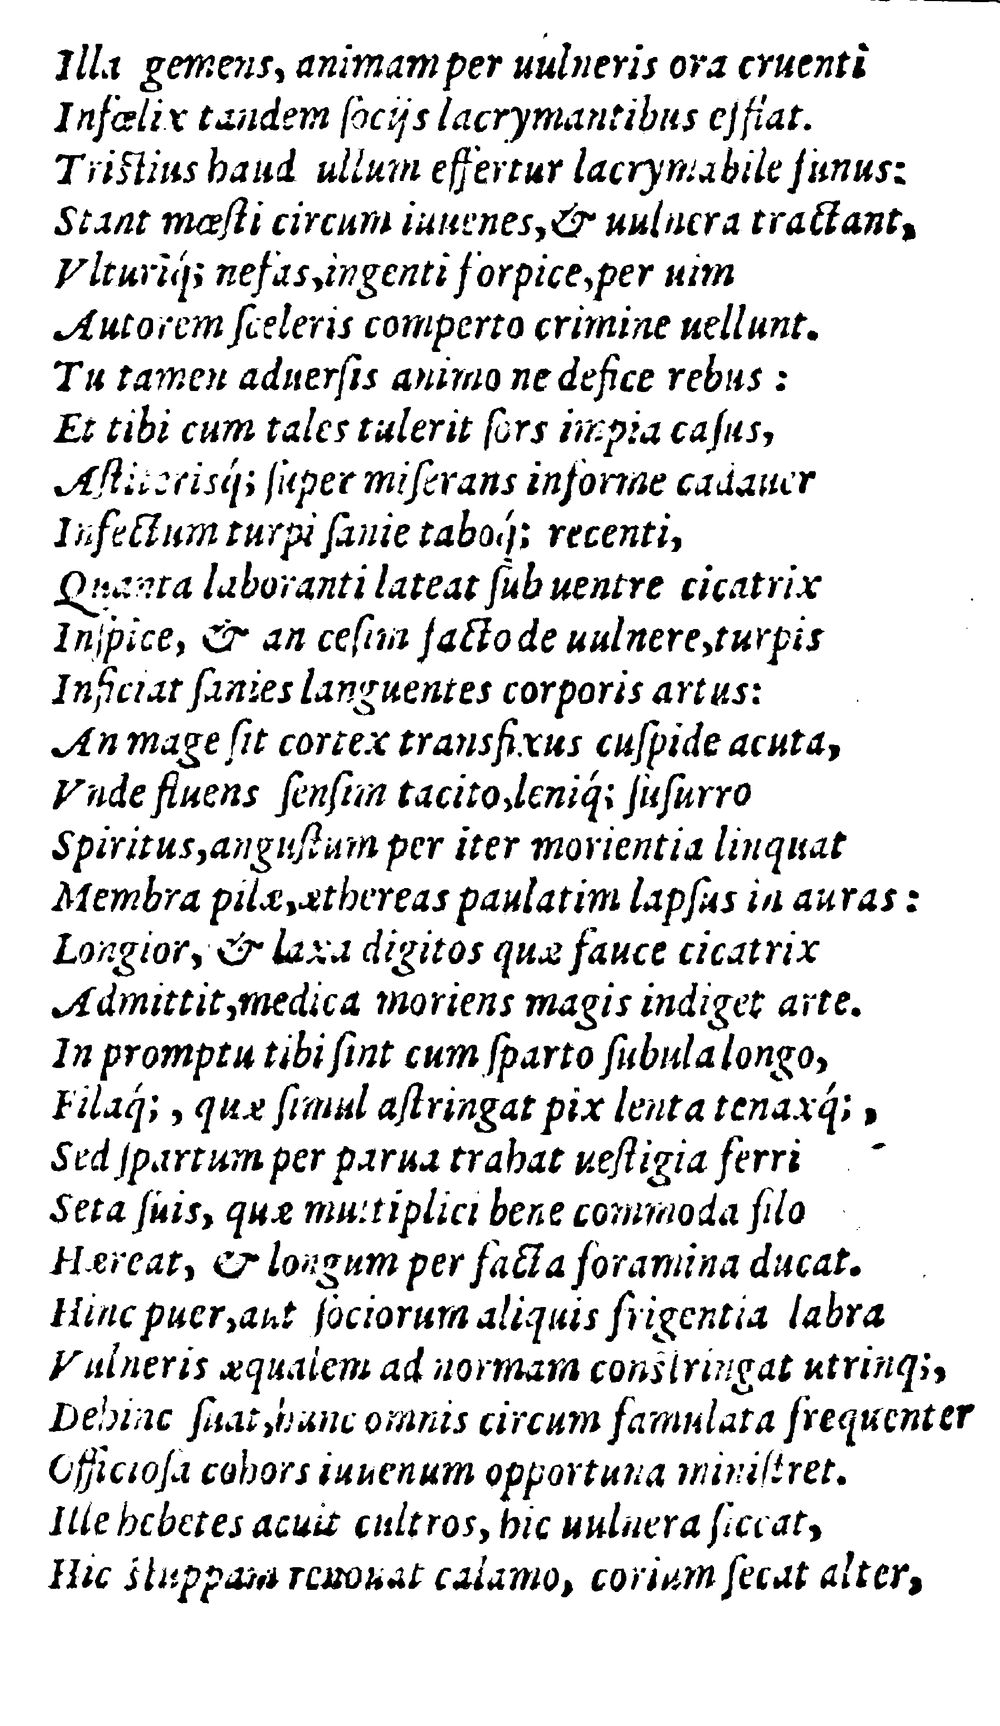 Illa gemens, animam per uulneris ora cruenti
Infœlix tandem ſocijs lacrymantibus efflat.
Triſtius haud ullum effertur lacrymabile funus:
Stant mœſti circum iuuenes, & uulnera tractant,
Vlturiq́; nefas, ingenti forpice, per uim
Autorem ſceleris comperto crimine uellunt.
Tu tamen aduerſis animo ne defice rebus :
Et tibi cum tales tulerit ſors impia caſus,
Aſtiterisq́; ſuper miſerans informe cadauer
Infectum turpi ſanie taboq́; recenti,
Quanta laboranti lateat ſub uentre cicatrix
Inſpice, & an ceſim facto de uulnere, turpis
Inficiat ſanies languentes corporis artus:
An mage ſit cortex transfixus cuſpide acuta,
Vnde fluens ſenſim tacito, leniq́; ſuſurro
Spiritus, anguſtum per iter morientia linquat
Membra pilæ, æthereas paulatim lapſus in auras :
Longior, & laxa digitos quæ fauce cicatrix
Admittit, medica moriens magis indiget arte.
In promptu tibi ſint cum ſparto ſubula longo,
Filaq́; , quæ ſimul aſtringat pix lenta tenaxq́; ,
Sed ſpartum per parua trahat ueſtigia ferri
Seta ſuis, quæ multiplici bene commoda filo
Hæreat, & longum per facta foramina ducat.
Hinc puer, aut ſociorum aliquis frigentia labra
Vulneris æqualem ad normam conſtringat utrinq;,
Dehinc ſuat, hunc omnis circum famulata frequenter
Officioſa cohors iuuenum opportuna miniſtret.
Ille hebetes acuit cultros, hic uulnera ſiccat,
Hic ſtuppam renouat calamo, corium ſecat alter,